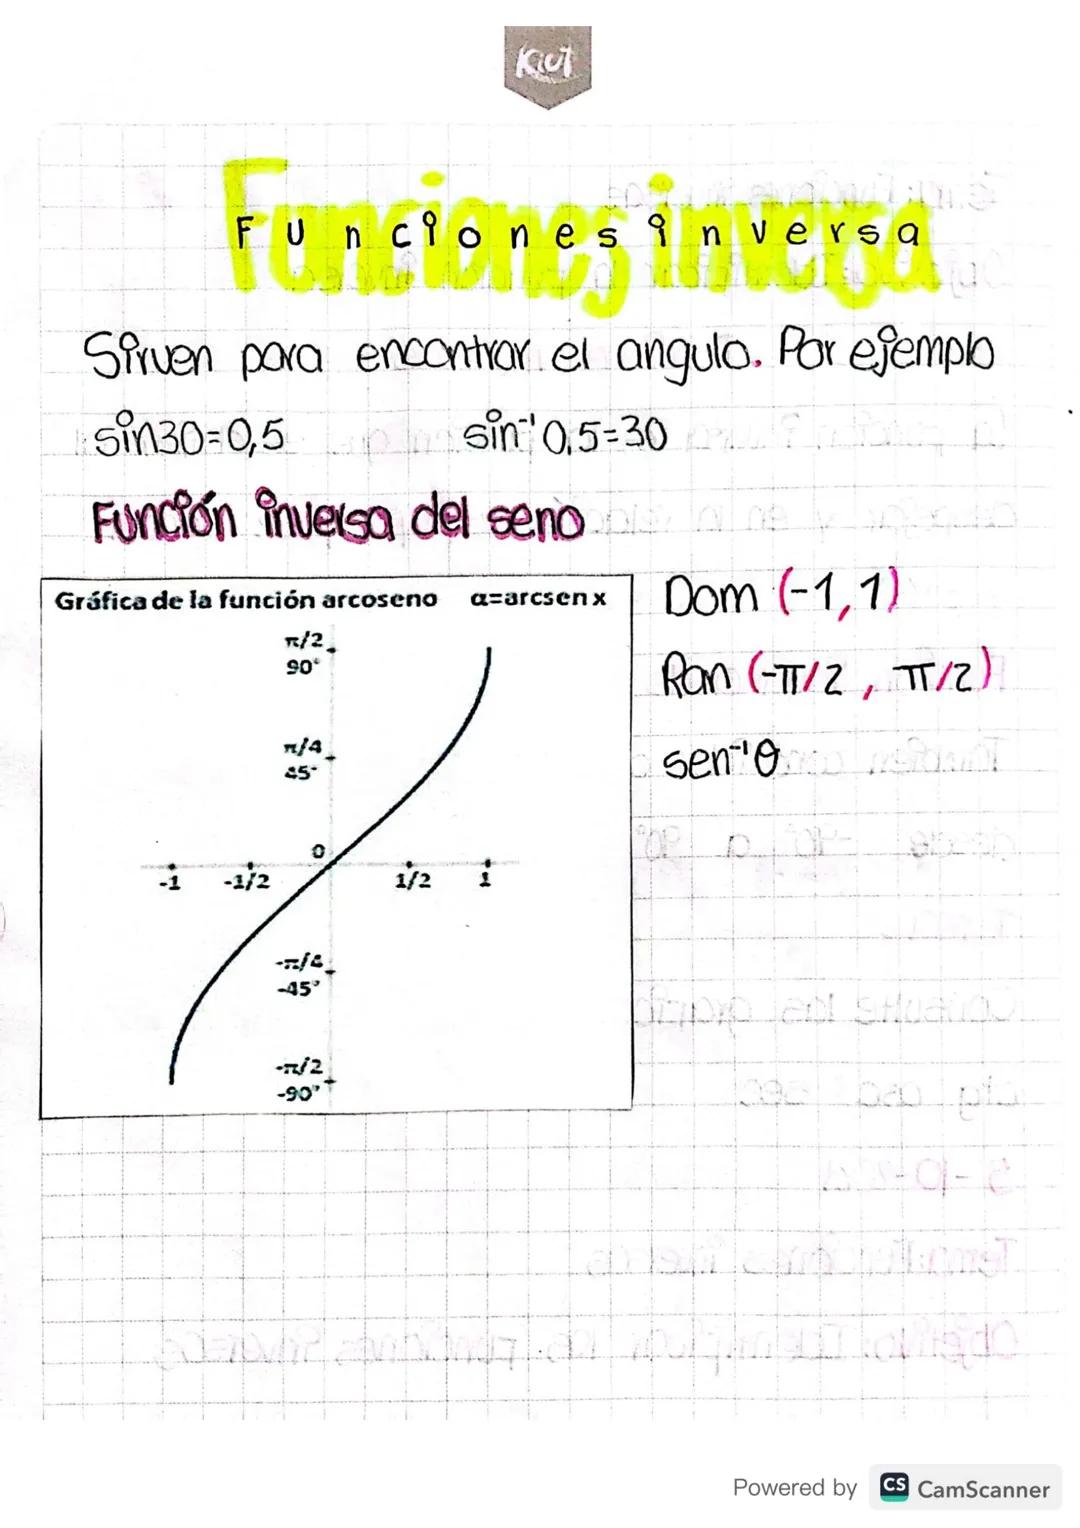 Kiut
Funciones inversa
Sirven para encontrar el angulo. Por ejemplo
sin30=0,5 sin⁻¹0,5=30
Función inversa del seno
Gráfica de la función arcoseno α=arcsen x
π/2
90°
π/4
45°
0
-1 -1/2 1/2 1
-π/4
-45°
-π/2
-90°
Dom (-1,1)
Ran (-π/2, π/2)
sen⁻¹θ
Powered by CS CamScanner